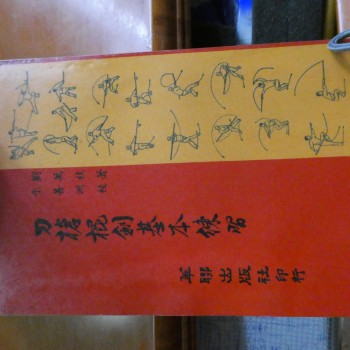 刀槍棍劍基本練習
華聯出版社印行